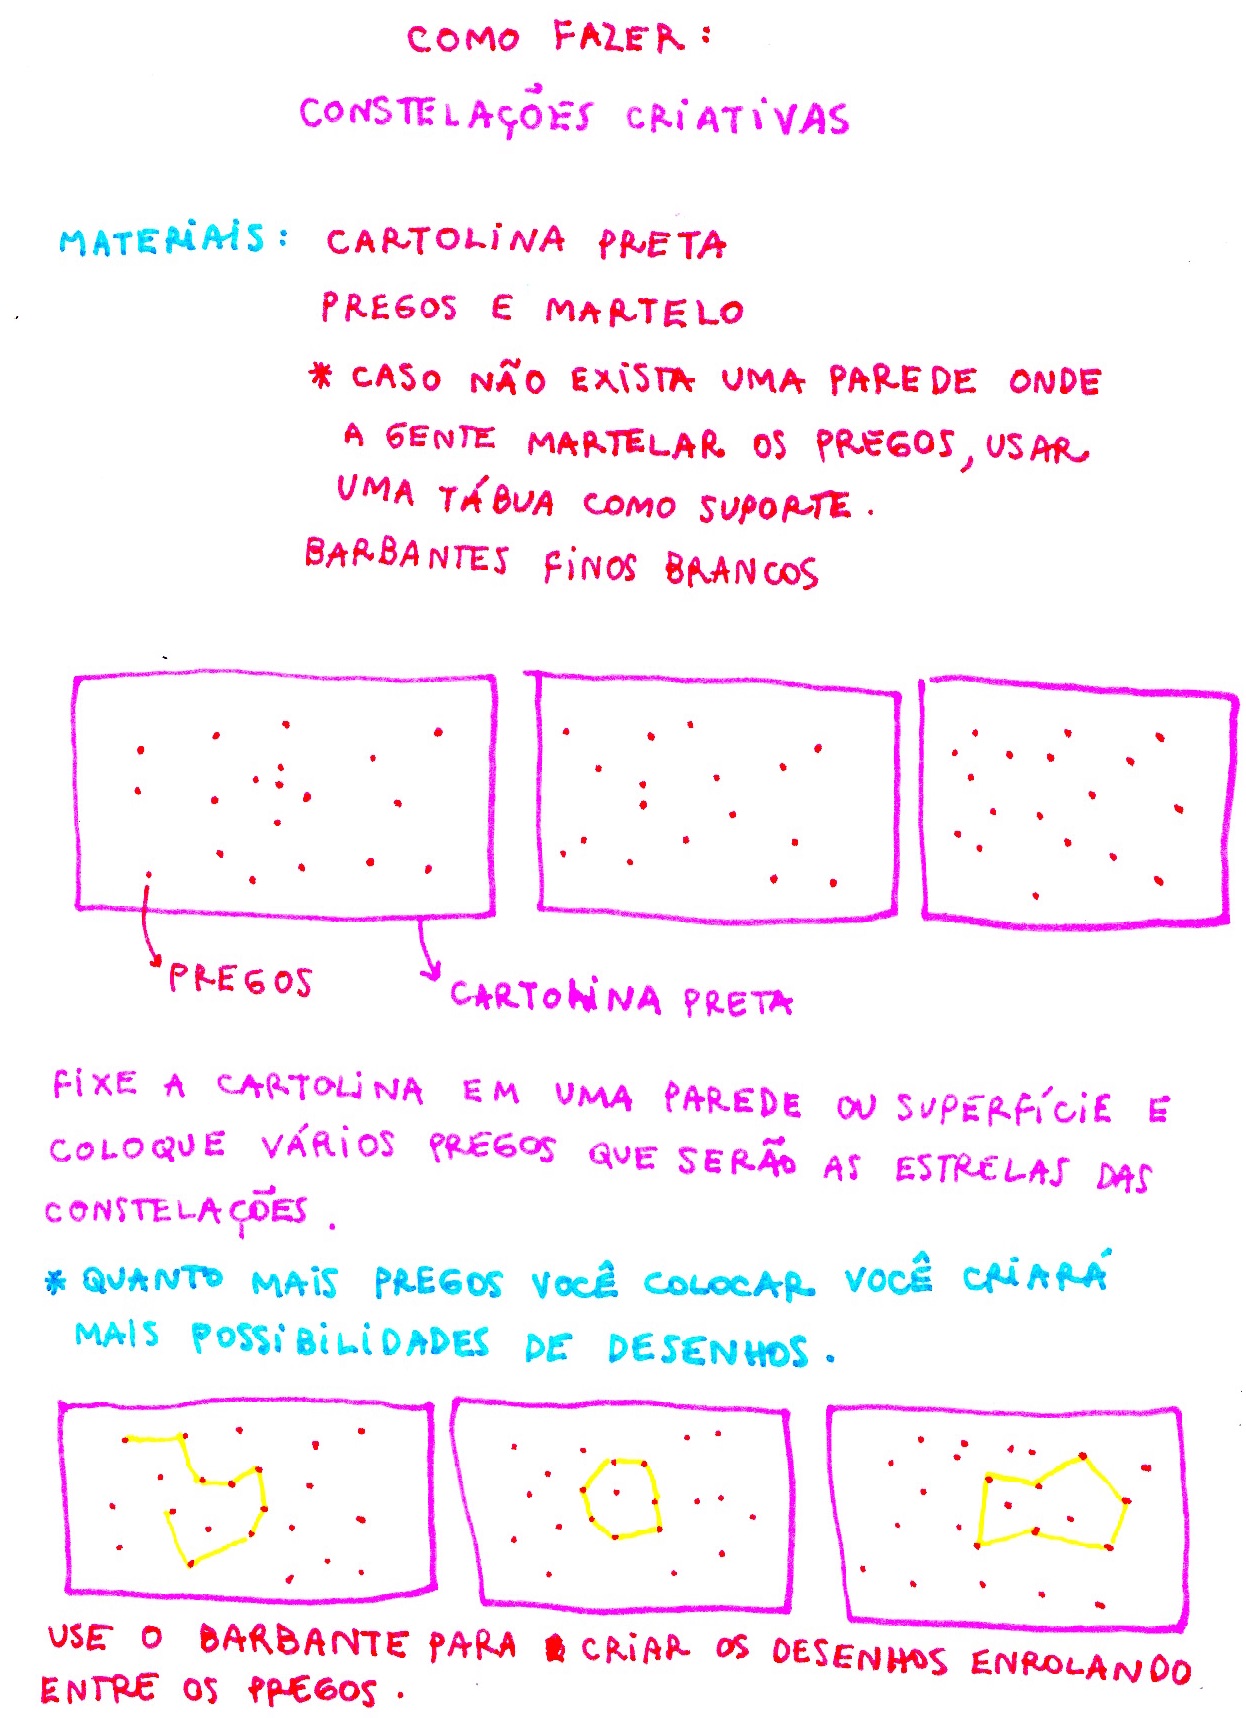 COMO FAZER:
CONSTELAÇÕES CRIATIVAS
MATERIAIS: CARTOLINA PRETA
PREGOS E MARTELO
* CASO NÃO EXISTA UMA PAREDE ONDE
A GENTE MARTELAR OS PREGOS, USAR
UMA TÁBUA COMO SUPORTE.
BARBANTES FINOS BRANCOS
PREGOS
CARTOLINA PRETA
FIXE A CARTOLINA EM UMA PAREDE OU SUPERFÍCIE E
COLOQUE VÁRIOS PREGOS QUE SERÃO AS ESTRELAS DAS
CONSTELAÇÕES.
* QUANTO MAIS PREGOS VOCÊ COLOCAR VOCÊ CRIARÁ
MAIS POSSIBILIDADES DE DESENHOS.
USE O BARBANTE PARA CRIAR OS DESENHOS ENROLANDO
ENTRE OS PREGOS.